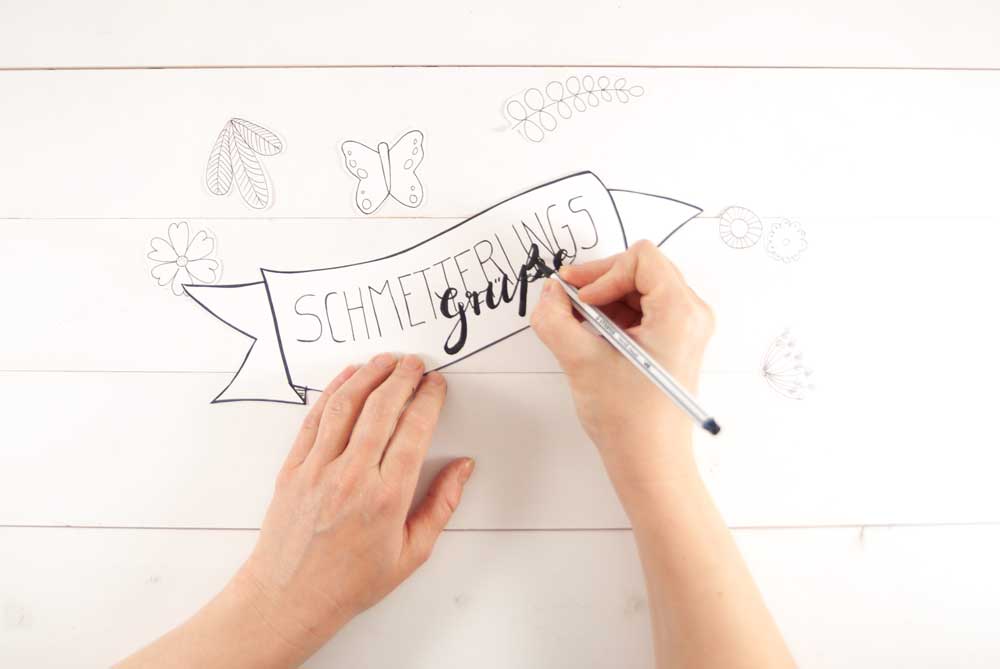 SCHMETTERLINGS
grüße